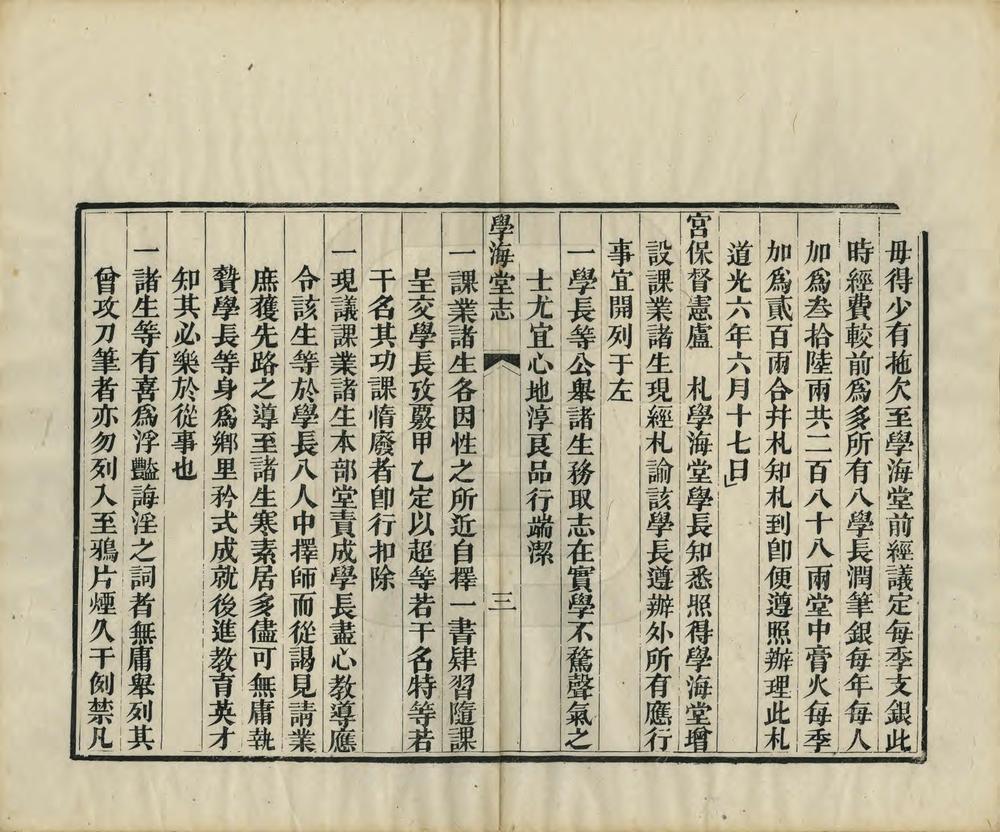 毋得少有拖欠至學海堂前經議定每季支銀此
時經費較前爲多所有八學長潤筆銀每年每人
加爲叁拾陸兩共二百八十八兩堂中膏火每季
加爲貳百兩合并札知札到卽便遵照辦理此札
道光六年六月十七日」
宮保督憲盧　札學海堂學長知悉照得學海堂增
設課業諸生現經札諭該學長遵辦外所有應行
事宜開列于左
一學長等公舉諸生務取志在實學不騖聲氣之
士尤宜心地淳良品行端潔
學海堂志　三
一課業諸生各因性之所近自擇一書肄習隨課
呈交學長攷覈甲乙定以超等若干名特等若
干名其功課惰廢者卽行扣除
一現議課業諸生本部堂責成學長盡心敎導應
令該生等於學長八人中擇師而從謁見請業
庶獲先路之導至諸生寒素居多儘可無庸執
贄學長等身爲鄉里矜式成就後進敎育英才
知其必樂於從事也
一諸生等有喜爲浮豔誨淫之詞者無庸舉列其
曾攻刀筆者亦勿列入至鴉片煙久干例禁凡